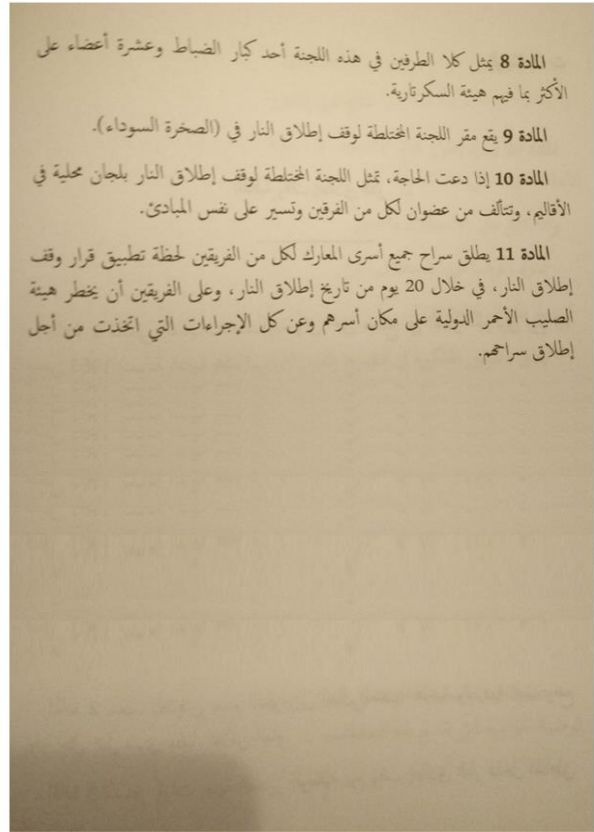 المادة 8 يمثل كلا الطرفين في هذه اللجنة أحد كبار الضباط وعشرة أعضاء على
الأكثر بما فيهم هيئة السكرتارية.
المادة 9 يقع مقر اللجنة المختلطة لوقف إطلاق النار في (الصخرة السوداء).
المادة 10 إذا دعت الحاجة، تمثل اللجنة المختلطة لوقف إطلاق النار بلجان محلية في
الأقاليم، وتتألف من عضوان لكل من الفرقين وتسير على نفس المبادئ.
المادة 11 يطلق سراح جميع أسرى المعارك لكل من الفريقين لحظة تطبيق قرار وقف
إطلاق النار، في خلال 20 يوم من تاريخ إطلاق النار، وعلى الفريقين أن يخطر هيئة
الصليب الأحمر الدولية على مكان أسرهم وعن كل الإجراءات التي اتخذت من أجل
إطلاق سراحهم.